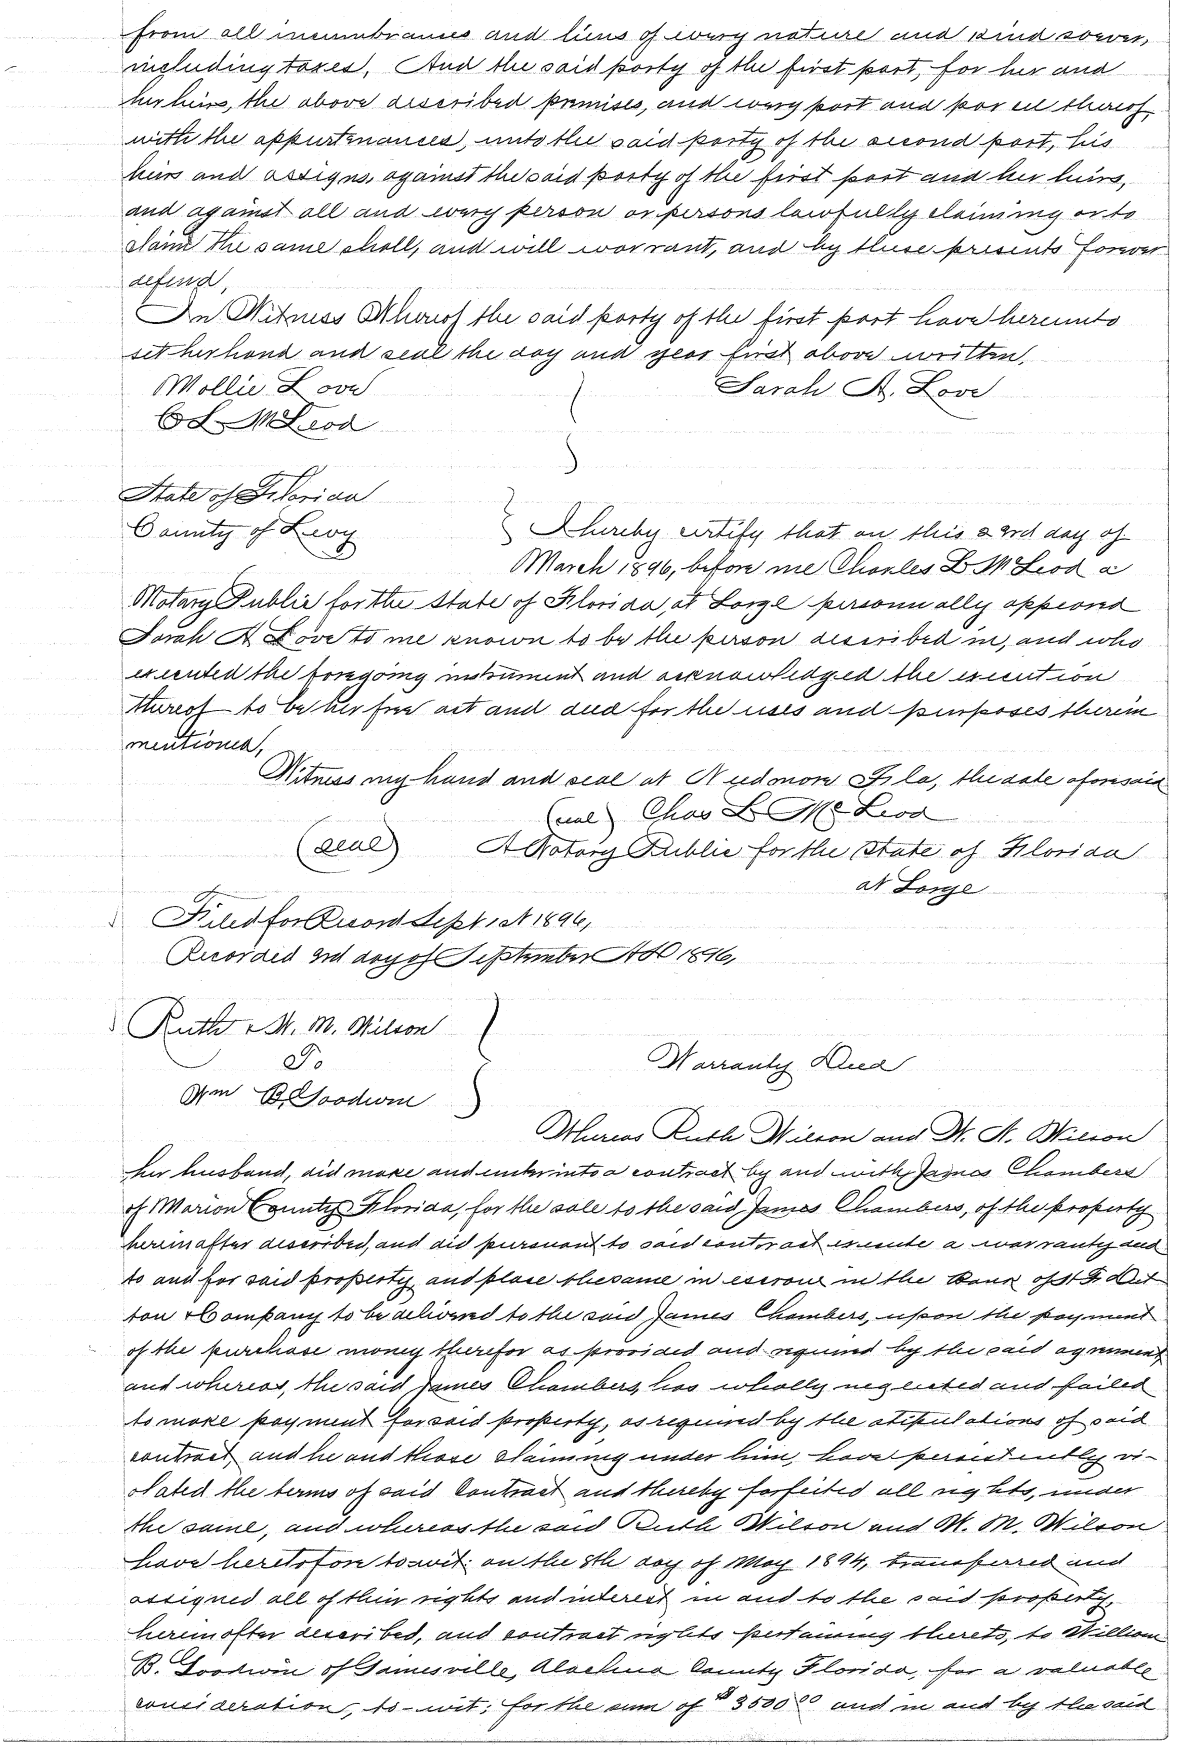 from all incumbrances and liens of every nature and kind soever,
including taxes, And the said party of the first part, for her and
her heirs, the above described premises, and every part and parcel thereof,
with the appurtenances, unto the said party of the second part, his
heirs and assigns, against the said party of the first part and her heirs,
and against all and every person or persons lawfully claiming or to
claim the same shall, and will warrant, and by these presents forever
defend,
In Witness Whereof the said party of the first part have hereunto
set her hand and seal the day and year first above written,
Mollie Love Sarah A. Love
C L McLeod
State of Florida
County of Levy I hereby certify that on this 23rd day of
March 1896, before me Charles L McLeod a
Notary Public for the State of Florida, at Large personually appeared
Sarah A Love to me known to be the person described in, and who
executed the foregoing instrument and acknowledged the execution
thereof to be her free act and deed for the uses and purposes therein
mentioned,
Witness my hand and seal at Needmore Fla, the date aforesaid
(seal) Chas L McLeod
(seal) A Notary Public for the State of Florida
at Large
Filed for Record Sept 1st 1896,
Recorded 3rd day of September AD 1896,
Ruth & W. M. Wilson
To Warranty Deed
Wm B. Goodwin
Whereas Ruth Wilson and W. N. Wilson
her husband, did make and enter into a contract by and with James Chambers
of Marion County Florida, for the sale to the said James Chambers, of the property
hereinafter described, and did pursuant to said contract execute a warranty deed
to and for said property and place the same in escrow in the Bank of H F Dut
ton & Company to be delivered to the said James Chambers, upon the payment
of the purchase money therefor as provided and required by the said agreement,
and whereas, the said James Chambers, has wholly neglected and failed
to make payment for said property, as required by the stipulations of said
contract, and he and those claiming under him, have persistently vi-
olated the terms of said Contract and thereby forfeited all rights, under
the same, and whereas the said Ruth Wilson and W. M. Wilson
have heretofore to wit: on the 8th day of May 1894, transferred and
assigned all of their rights and interest in and to the said property,
hereinafter described, and contract rights pertaining thereto, to William
B. Goodwin of Gainesville, Alachua County Florida, for a valuable
consideration, to-wit; for the sum of $3500.00 and in and by the said